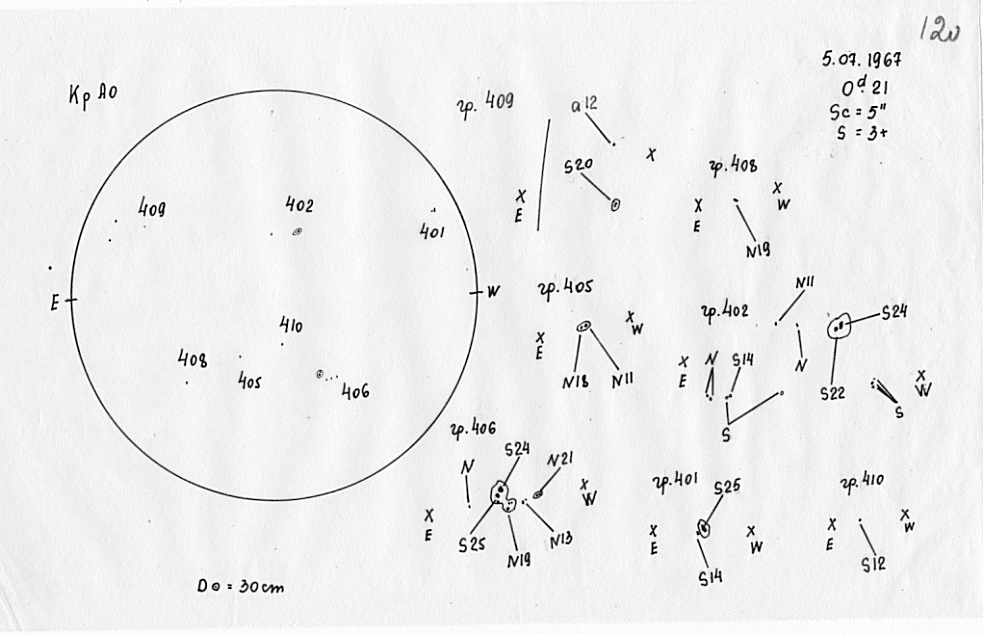 120
5.07.1967
0ᵈ.21
Sc = 5"
S = 3+
Кр АО
409
402
401
E
W
410
408
405
406
D⊙ = 30cm
гр. 409
a12
S20
X
X
E
гр. 408
X
E
X
W
N19
гр. 405
X
E
X
W
N18
N11
гр. 402
N11
S24
N
S14
N
X
E
S22
X
W
S
S
гр. 406
S24
N
N21
X
W
X
E
S25
N19
N13
гр. 401
S25
X
E
X
W
S14
гр. 410
X
E
X
W
S12